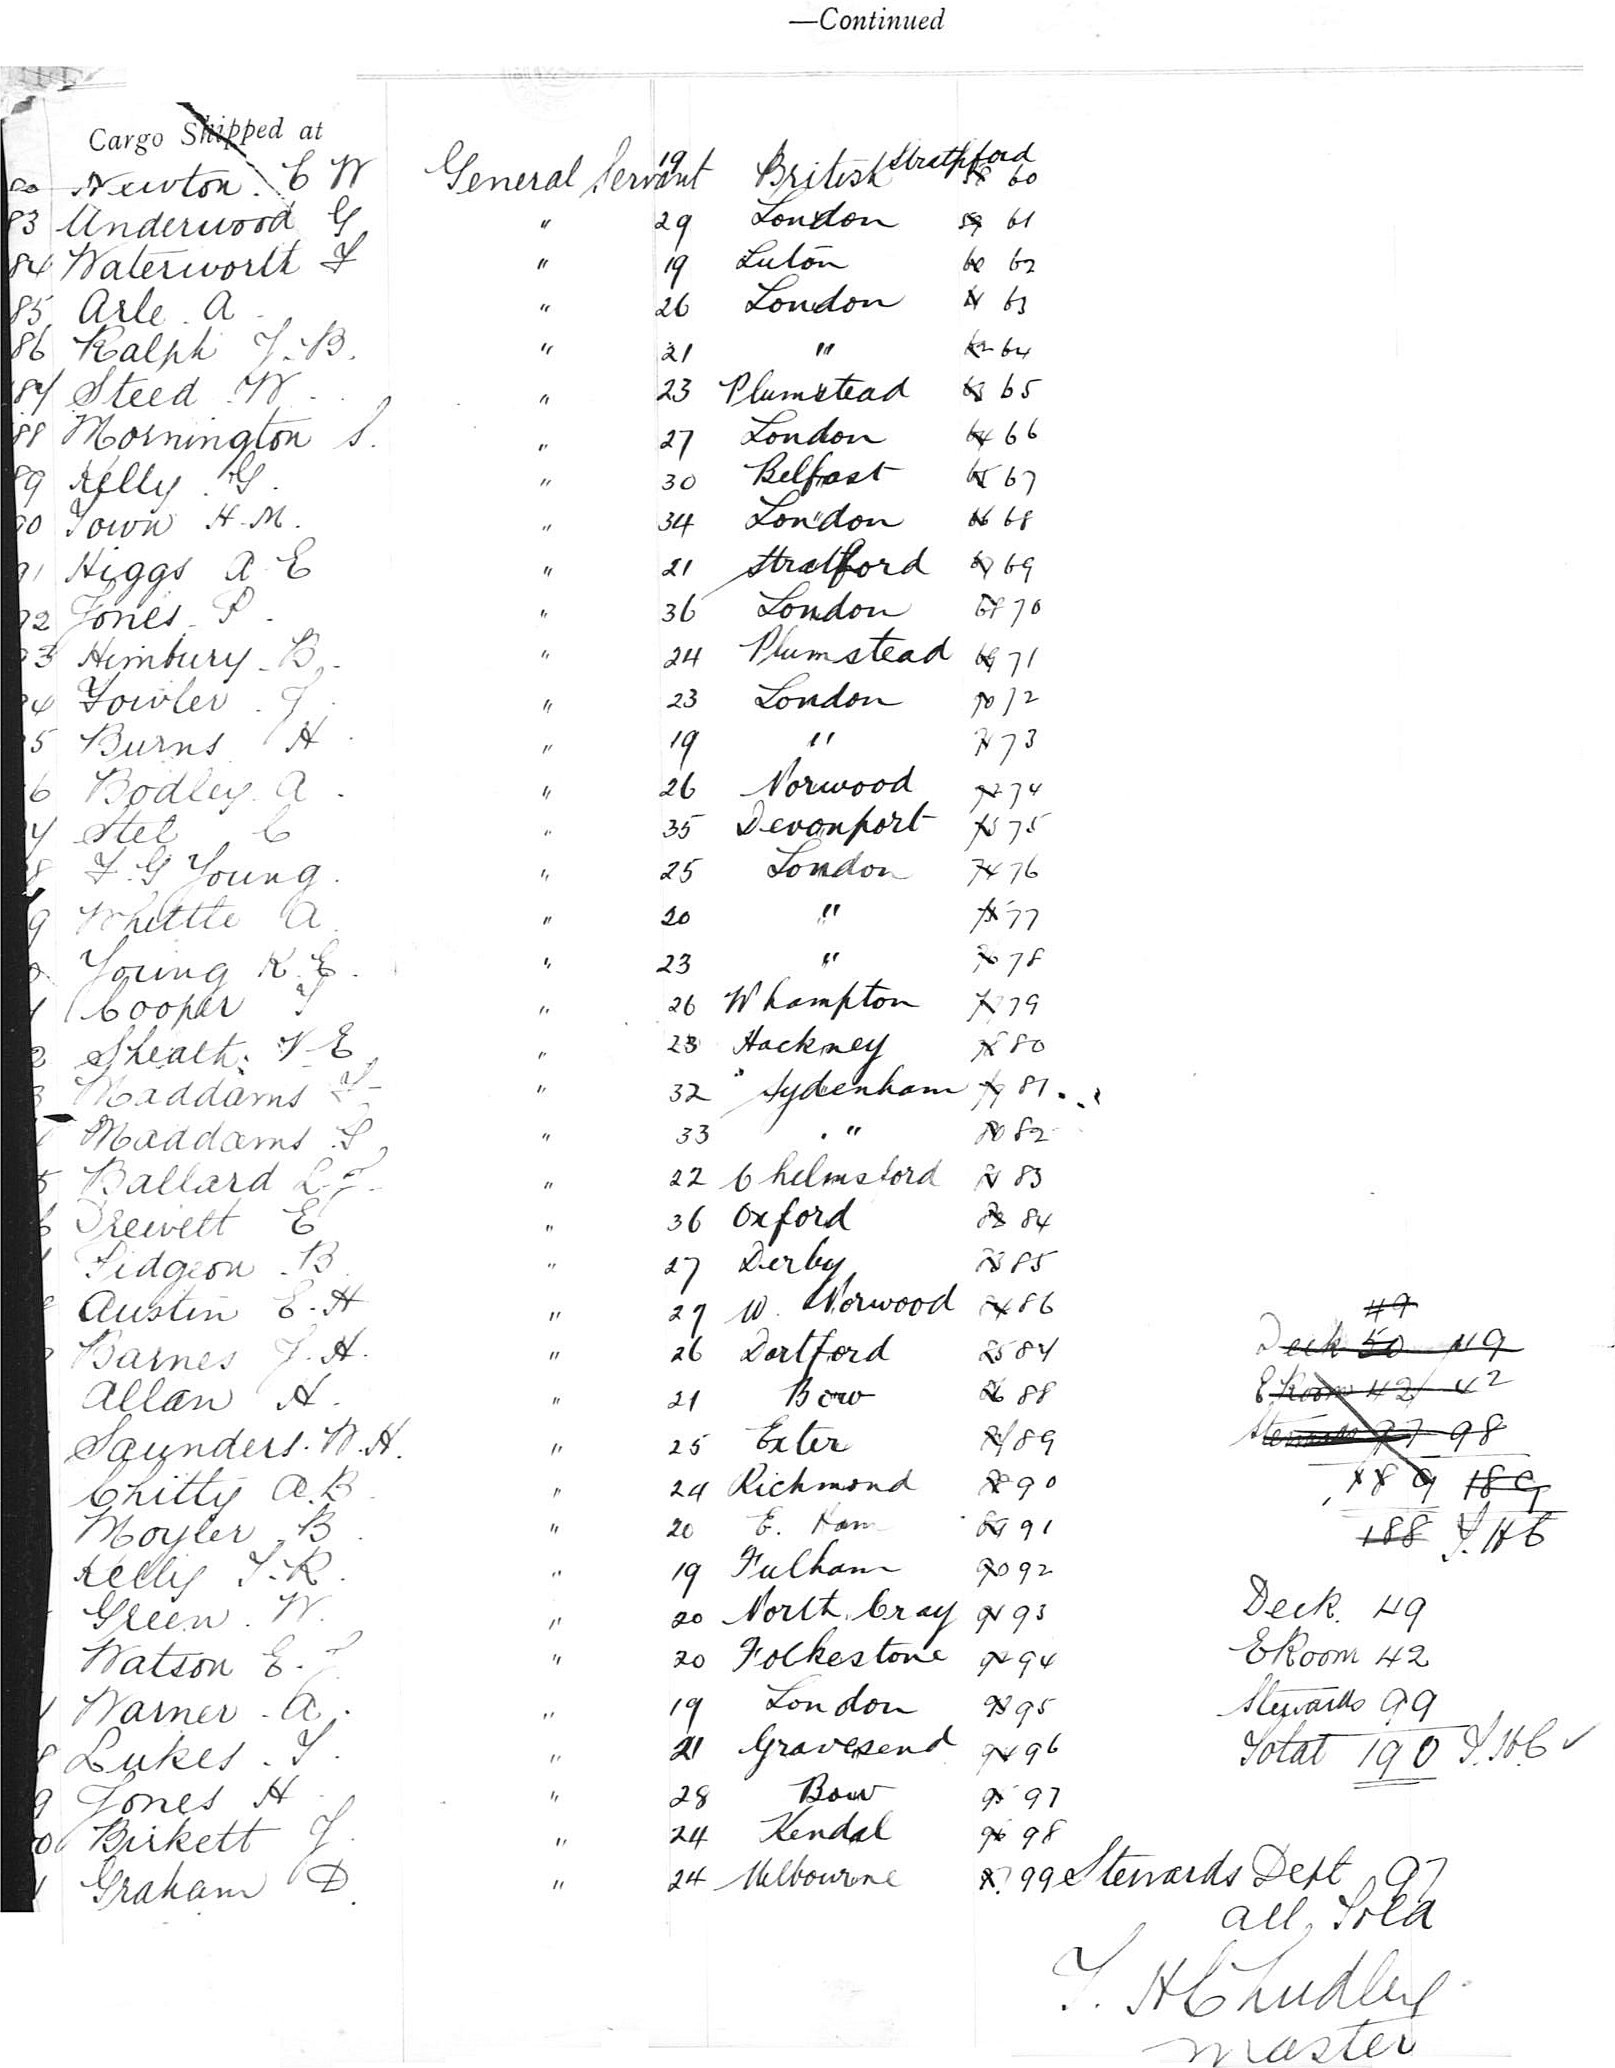 —Continued
Cargo Shipped at
Newton. C W General Servant 19 British Stratford 58 60
83 Underwood G " 29 London 59 61
84 Waterworth F " 19 Luton 60 62
85 Arle. A " 26 London 61 63
86 Ralph J. B. " 21 " 62 64
87 Steed. W. " 23 Plumstead 63 65
88 Mornington S. " 27 London 64 66
89 Kelly. G. " 30 Belfast 65 67
90 Town H. M. " 34 London 66 68
91 Higgs A E " 21 Stratford 67 69
92 Jones. P. " 36 London 68 70
93 Himbury. B. " 24 Plumstead 69 71
94 Fowler. J. " 23 London 70 72
95 Burns H " 19 " 71 73
96 Bodley. A. " 26 Norwood 72 74
Stel C " 35 Devonport 73 75
8 F. G Young. " 25 London 74 76
9 Whittle A. " 20 " 75 77
Young K. E. " 23 " 76 78
1 Cooper T " 26 Whampton 77 79
2 Sheath. V. E " 23 Hackney 78 80
3 Maddams F. " 32 Sydenham 79 81
Maddams G. " 33 " 80 82
5 Ballard L. F. " 22 Chelmsford 81 83
6 Drewett E " 36 Oxford 82 84
Pidgeon. B. " 27 Derby 83 85
Austin E. H " 29 W. Norwood 84 86
Barnes J. H. " 26 Dartford 85 87
Allan H. " 21 Bow 86 88
Saunders. W. H. " 25 Exter 87 89
Chitty A. B. " 24 Richmond 88 90
Moyler. B. " 20 E. Ham 89 91
Kelly T. R. " 19 Fulham 90 92
Green. W. " 20 North Cray 91 93
Watson E. J. " 20 Folkestone 92 94
Warner. A. " 19 London 93 95
8 Lukes. T. " 21 Gravesend 94 96
9 Jones H " 28 Bow 95 97
0 Birkett J. " 24 Kendal 96 98
1 Graham D. " 24 Melbourne 97 99
49
Deck 50 49
E. Room 42 42
Stewards 97 98
189 189
188 T. H C
Deck. 49
E Room 42
Stewards 99
Total 190 T. H. C ✓
Stewards Dept 97
all Told
T. H Chudley
Master